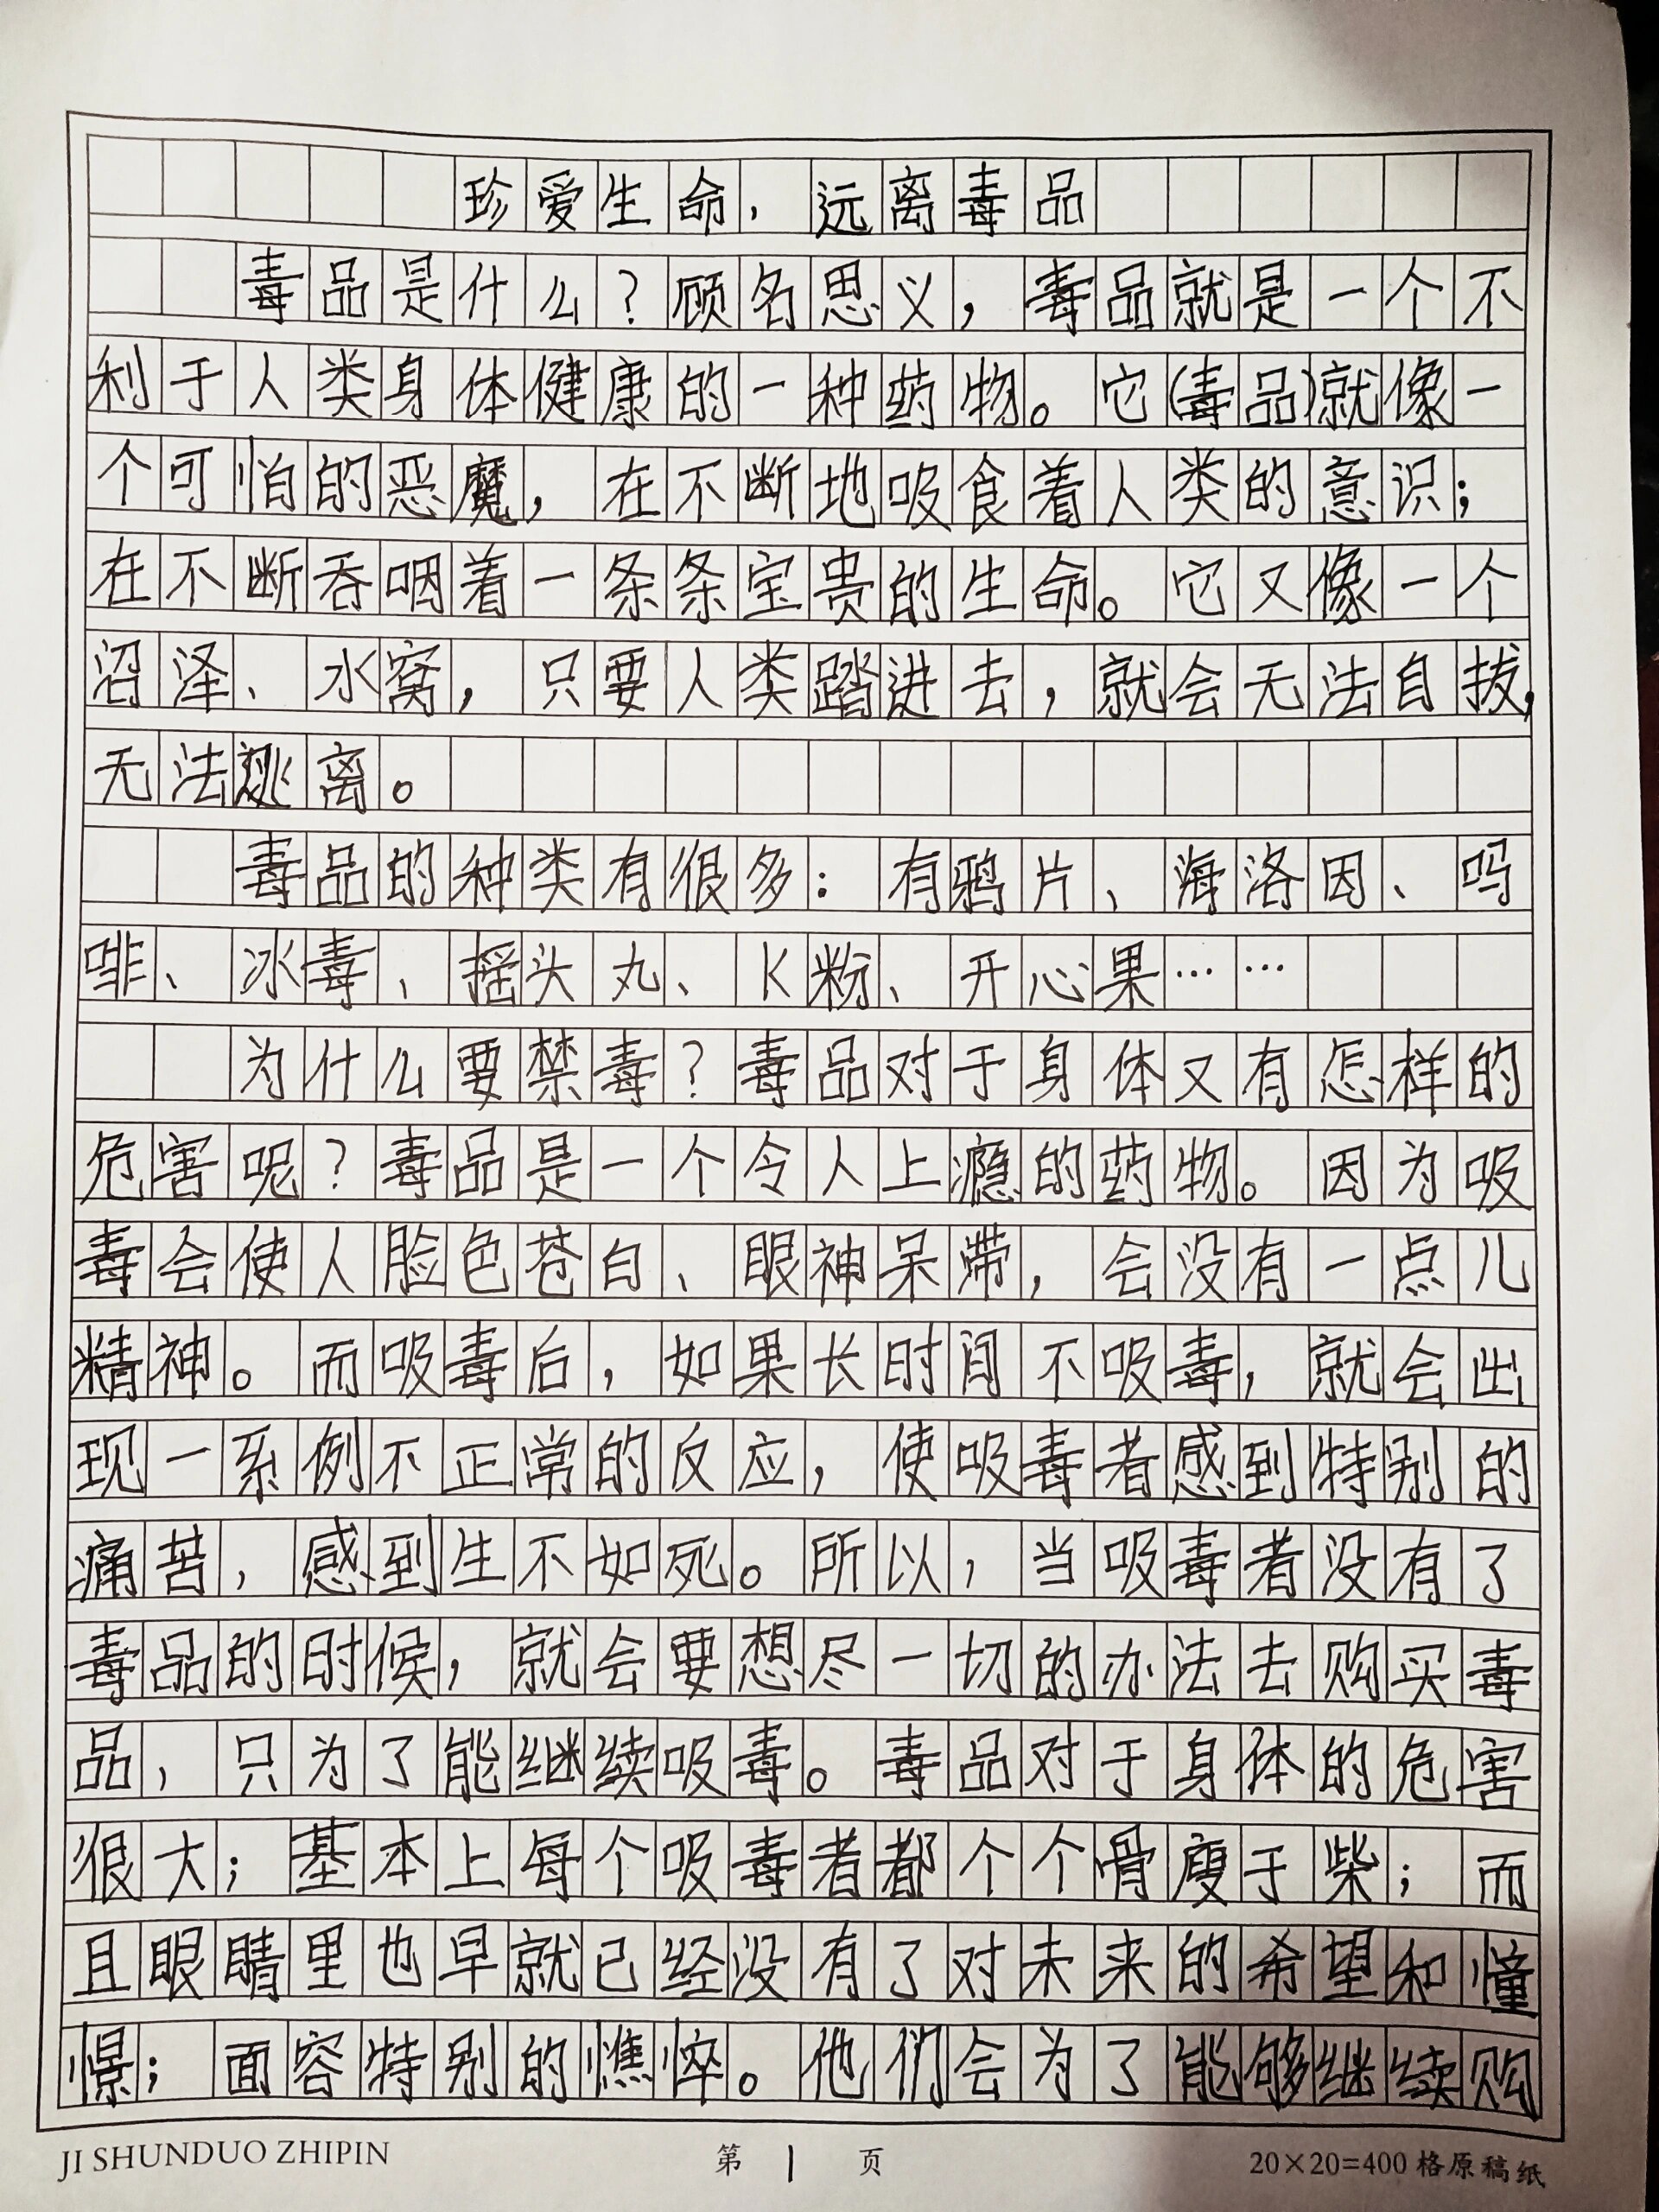 珍爱生命，远离毒品
毒品是什么？顾名思义，毒品就是一个不
利于人类身体健康的一种药物。它(毒品)就像一
个可怕的恶魔，在不断地吸食着人类的意识；
在不断吞咽着一条条宝贵的生命。它又像一个
沼泽、水窝，只要人类踏进去，就会无法自拔，
无法逃离。
毒品的种类有很多：有鸦片、海洛因、吗
啡、冰毒、摇头丸、K粉、开心果……
为什么要禁毒？毒品对于身体又有怎样的
危害呢？毒品是一个令人上瘾的药物。因为吸
毒会使人脸色苍白、眼神呆滞，会没有一点儿
精神。而吸毒后，如果长时间不吸毒，就会出
现一系例不正常的反应，使吸毒者感到特别的
痛苦，感到生不如死。所以，当吸毒者没有了
毒品的时候，就会要想尽一切的办法去购买毒
品，只为了能继续吸毒。毒品对于身体的危害
很大；基本上每个吸毒者都个个骨瘦于柴；而
且眼睛里也早就已经没有了对未来的希望和憧
憬；面容特别的憔悴。他们会为了能够继续购
JI SHUNDUO ZHIPIN 第 1 页 20×20=400 格原稿纸